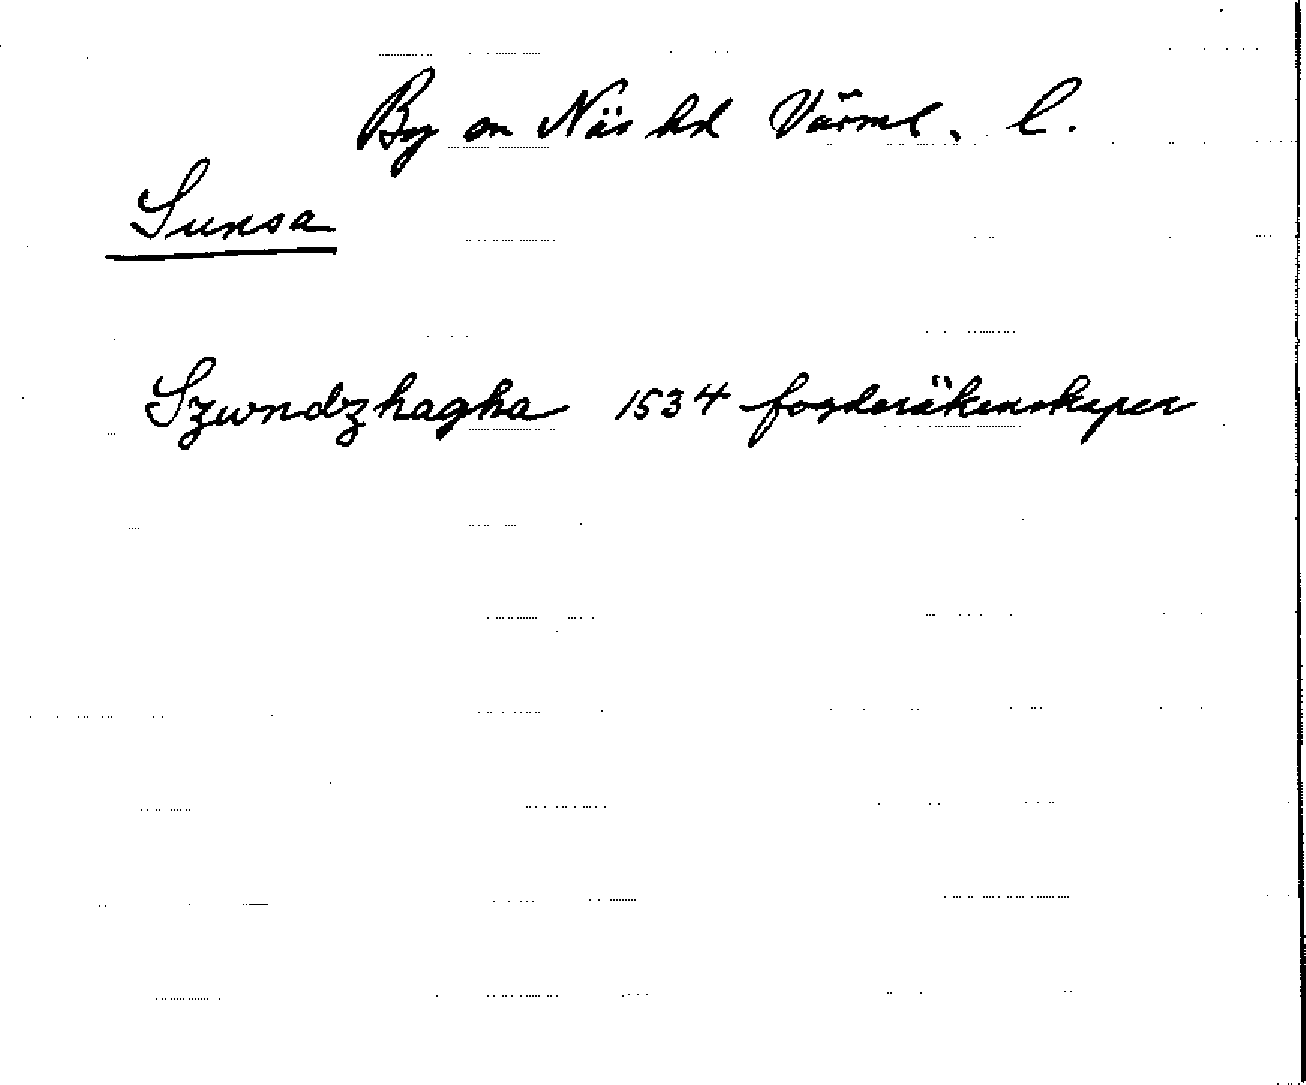 By sn Näs hd Värml. l.
Sunsa
Szwndzhagha 1534 fogderäkenskaper